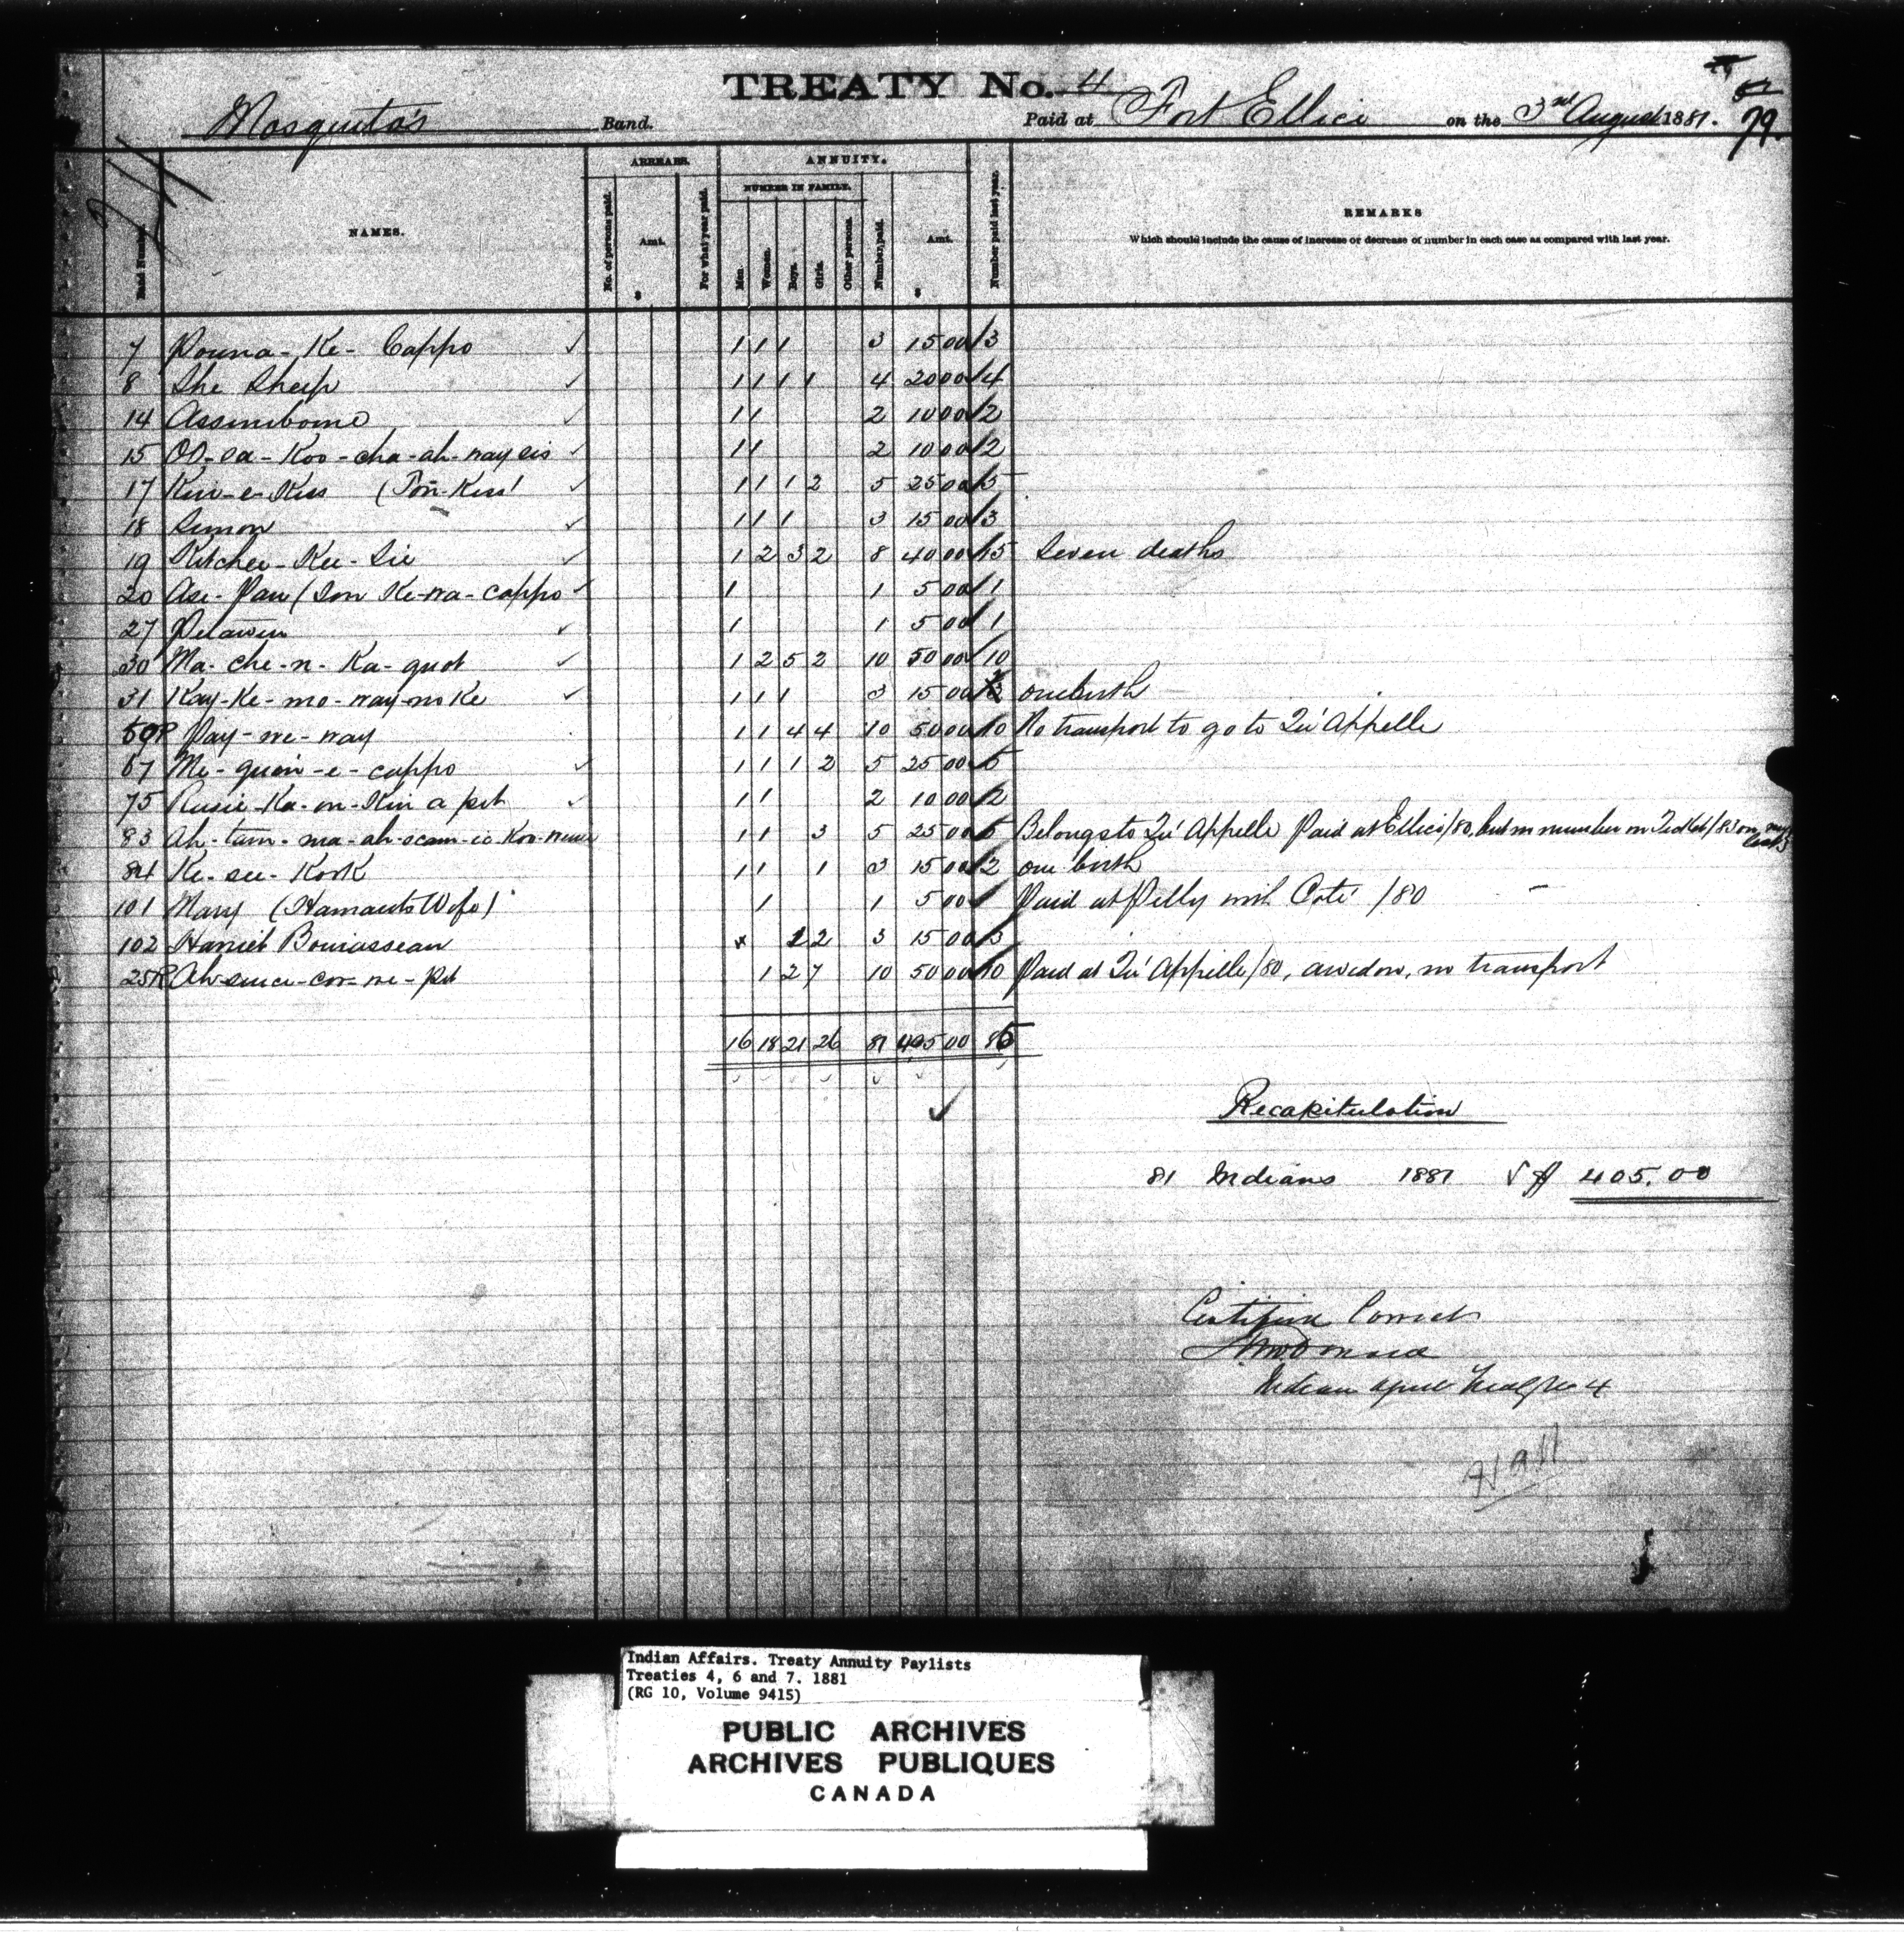 TREATY No. 4
79.
Mosquito's Band. Paid at Fort Ellice on the 3rd August 1881.
ARREARS. ANNUITY.
NUMBER IN FAMILY.
NAMES. No. of persons paid. Amt. $ For what year paid. Men. Women. Boys. Girls. Other persons. Number paid. Amt. $ Number paid last year.
REMARKS
Which should include the cause of increase or decrease of number in each case as compared with last year.
7 Pouna-Ke-Cappo 1 1 1 3 15 00 3
8 The Sheep 1 1 1 1 4 20 00 4
14 Assiniboine 1 1 2 10 00 2
15 OO-sa-Koo-cha-ah-nay sis 1 1 2 10 00 2
17 Kiss 1 1 1 2 5 25 00 5
18 Simon 1 1 1 3 15 00 3
19 Kitchee-Kee-Sie 1 2 3 2 8 40 00 15 Seven deaths
20 Ase-Pan (Son Ke-na-cappo 1 1 5 00 1
27 Petawin 1 1 5 00 1
30 Ma-che-n-Ka-quot 1 2 5 2 10 50 00 10
31 Kay-Ke-mo-way-no Ke 1 1 1 3 15 00 one birth
Pay-we-way 1 1 4 4 10 50 00 10 No transport to go to Qu'Appelle
67 Me-quon-e-cappo 1 1 1 2 5 25 00 5
75 Ka-on-Kin a pit 1 1 2 10 00 2
83 Ah-tam-ma-ah-scam-ic-Koo- 1 1 3 5 25 00 5 Belongs to Qu'Appelle Paid at Ellice/80, but no number on
84 Ke-see-KooK 1 1 1 3 15 00 2 one birth
101 Mary (Hamaults Wife) 1 1 5 00 Paid at Pelly with Coté /80
102 Harriet Bourasseau 2 3 15 00 3
25R 1 2 7 10 50 00 10 Paid at Qu'Appelle/80, a widow, no transport
16 18 21 26 81 405 00 86
Recapitulation
81 Indians 1881 $ 405.00
Certified Correct
Indian Agent Treaty No 4
Indian Affairs. Treaty Annuity Paylists
Treaties 4, 6 and 7. 1881
(RG 10, Volume 9415)
PUBLIC ARCHIVES
ARCHIVES PUBLIQUES
CANADA